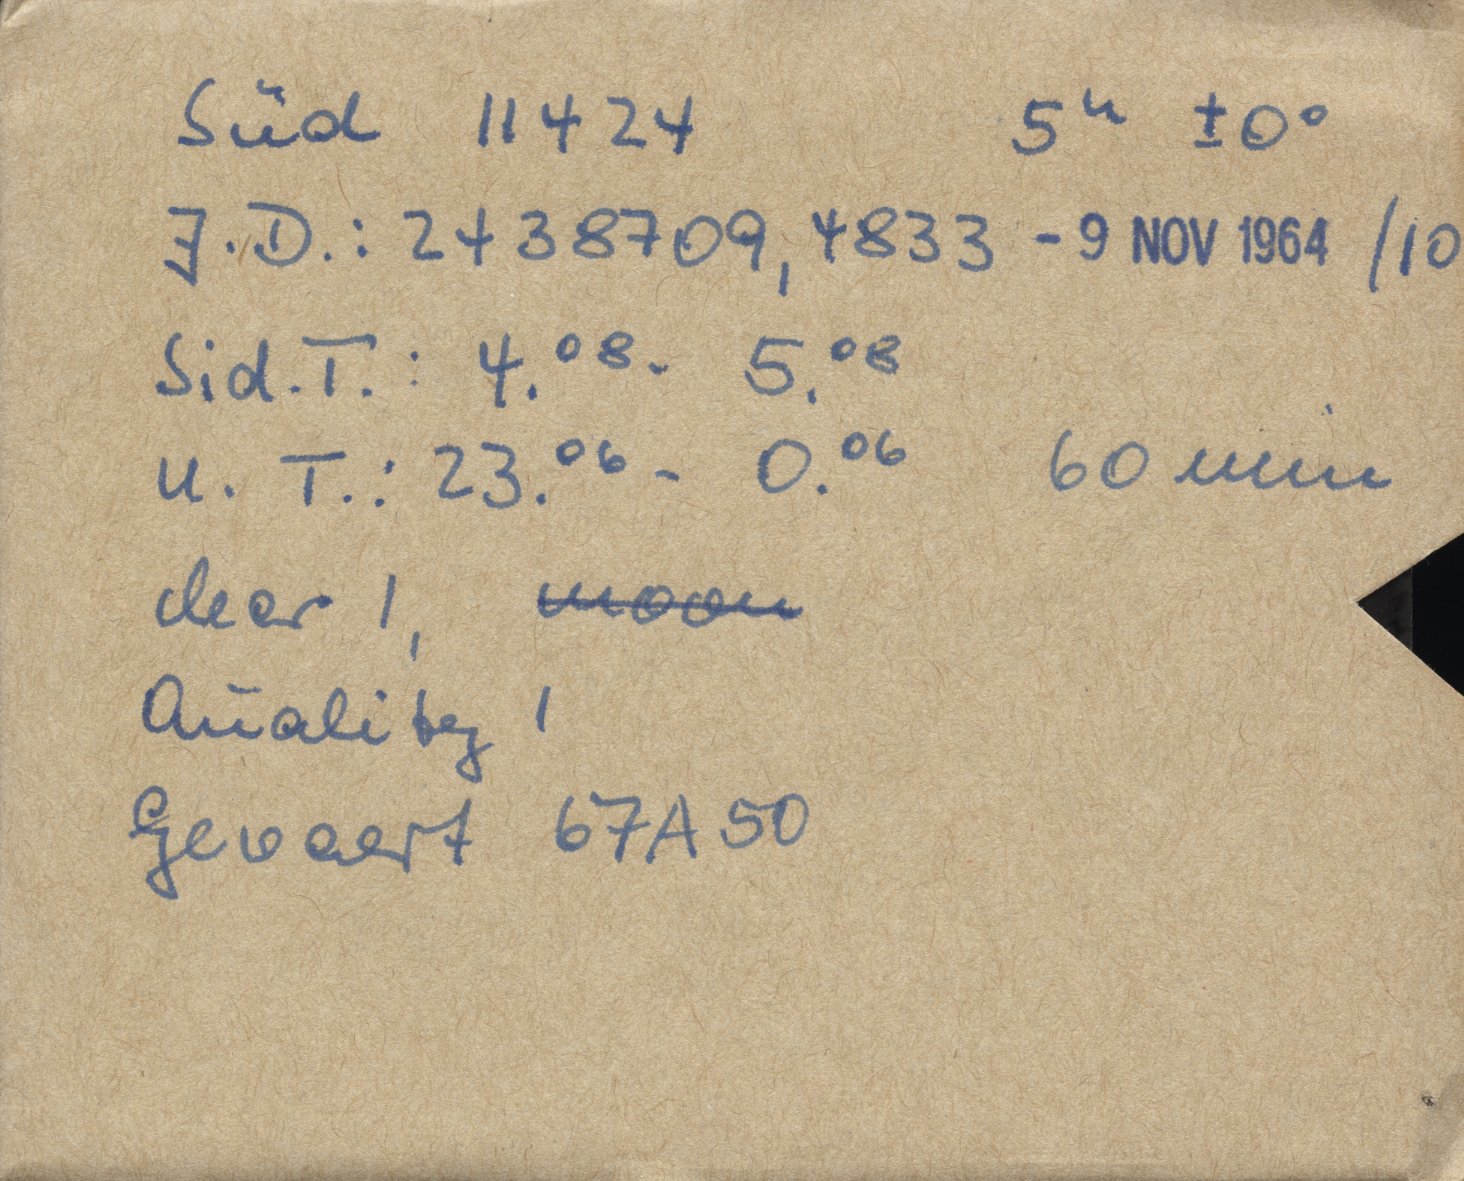 Süd 11424 5ʰ ±0°
J.D.: 2438709,4833 -9 NOV 1964 /10
Sid.T.: 4.⁰⁸- 5.⁰⁸
U.T.: 23.⁰⁶- 0.⁰⁶ 60 min
clear 1, ~~moon~~
Quality 1
Gevaert 67A50